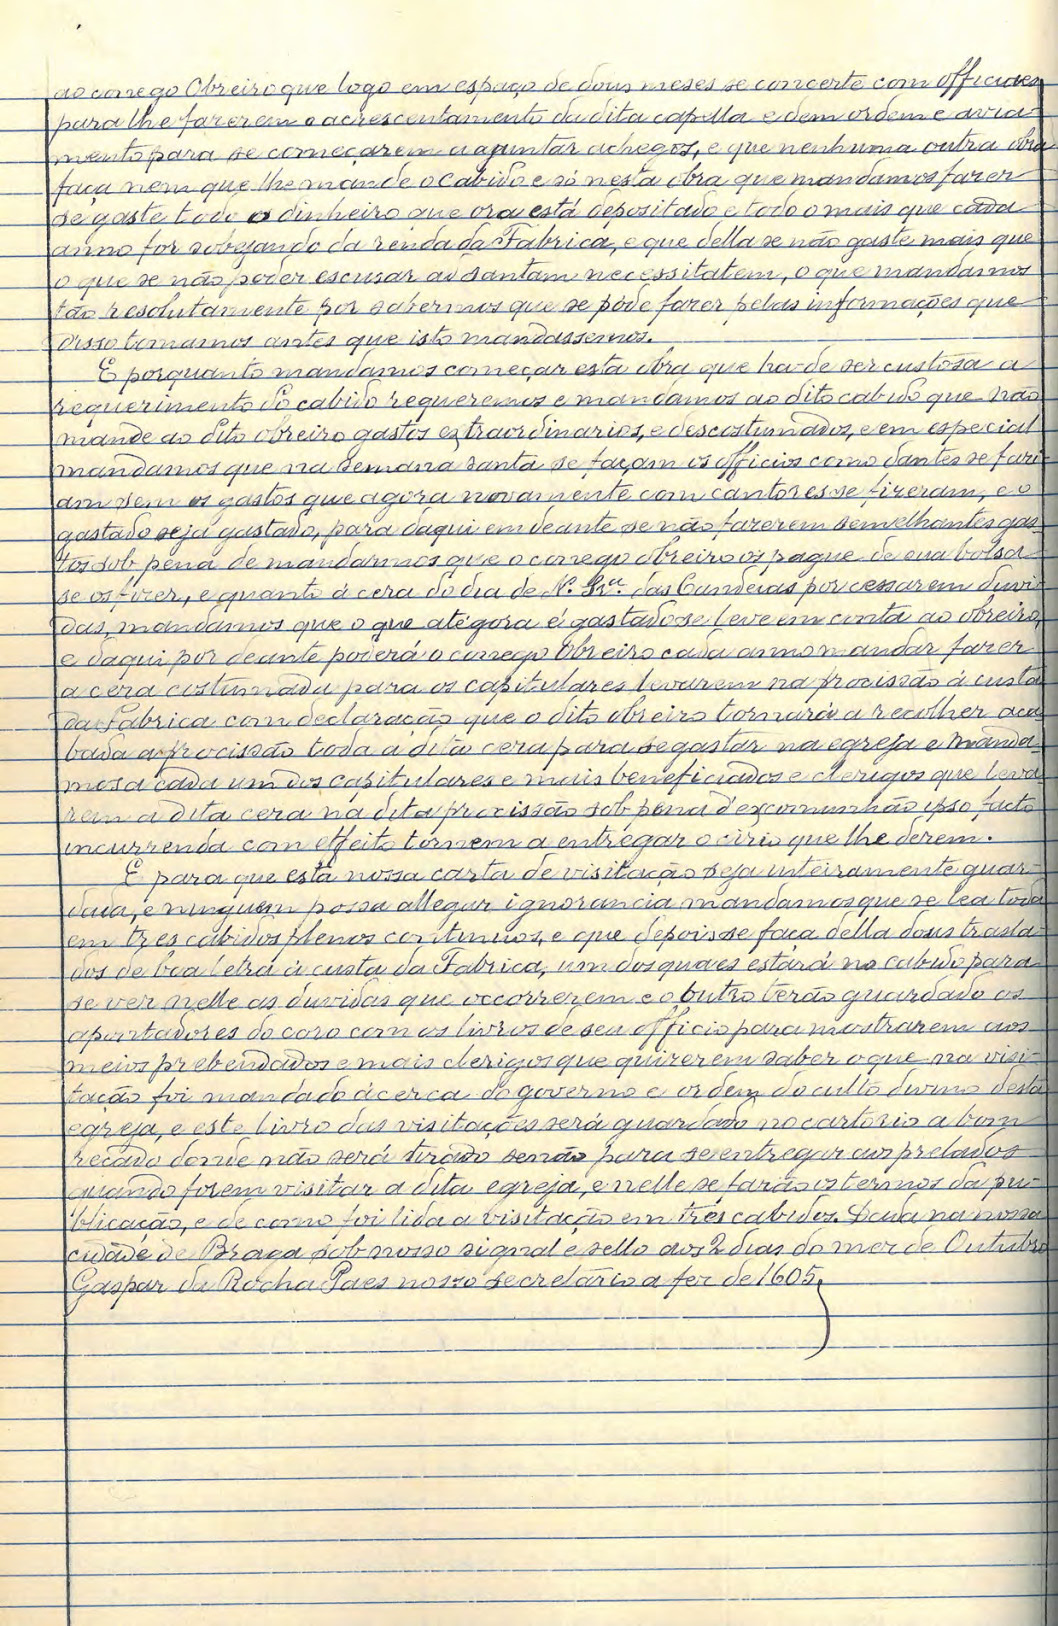 ao conego Obreiro que logo em espaço de dous meses se concerte com officiaes
para lhe fazerem o acrescentamento da dita capella e dem ordem e avia-
mento para se começarem a ajuntar achegos, e que nenhuma outra obra
faça nem que lhe mande o Cabido e só nesta obra que mandamos fazer
se gaste todo o dinheiro que ora está depositado e todo o mais que cada
anno for sobejando da renda da Fabrica, e que della se não gaste mais que
o que se não poder escusar ad santam necessitatem, o que mandamos
tão resolutamente por sabermos que se póde fazer pelas informações que
disso tomamos antes que isto mandassemos.
E porquanto mandamos começar esta obra que ha-de ser custosa a
requerimento do cabido requeremos e mandamos ao dito cabido que não
mande ao dito obreiro gastos extraordinarios, e descostumados, e em especial
mandamos que na semana santa se façam os officios como dantes se fazi-
am sem os gastos que agora novamente com cantores se fizeram, e o
gastado seja gastado, para daqui em deante se não fazerem semelhantes gas-
tos sob pena de mandarmos que o conego obreiro os pague de sua bolsa
se os fizer, e quanto á cera do dia de N. Sra. das Candeias por cessarem duvi-
das, mandamos que o que atégora é gastado se leve em conta ao obreiro,
e daqui por deante poderá o conego Obreiro cada anno mandar fazer
a cera costumada para os capitulares levarem na procissão á custa
da Fabrica com declaração que o dito obreiro tornará a recolher aca-
bada a procissão toda a dita cera para se gastar na egreja e manda-
mos a cada um dos capitulares e mais beneficiados e clerigos que leva-
rem a dita cera na dita procissão sob pena d'excomunhão ipso facto
incurrenda com effeito tornem a entregar o cirio que lhe derem.
E para que esta nossa carta de visitação seja inteiramente guar-
dada, e ninguem possa allegar ignorancia mandamos que se lea toda
em tres cabidos plenos continuos, e que depois se faça della dous trasla-
dos de boa letra á custa da Fabrica, um dos quaes estará no cabido para
se ver nelle as duvidas que occorrerem e o outro terão guardado os
apontadores do coro com os livros de seu officio para mostrarem aos
meios prebendados e mais clerigos que quizerem saber o que na visi-
tação foi mandado ácerca do governo e ordem do culto divino desta
egreja, e este livro das visitações será guardado no cartorio a bom
recado donde não será tirado senão para se entregar aos prelados
quando forem visitar a dita egreja, e nelle se farão os termos da pu-
blicação, e de como foi lida a visitação em três cabidos. Dada na nossa
cidade de Braga sob nosso signal e sello aos 2 dias do mez de Outubro
Gaspar da Rocha Paes nosso secretário a fez de 1605,